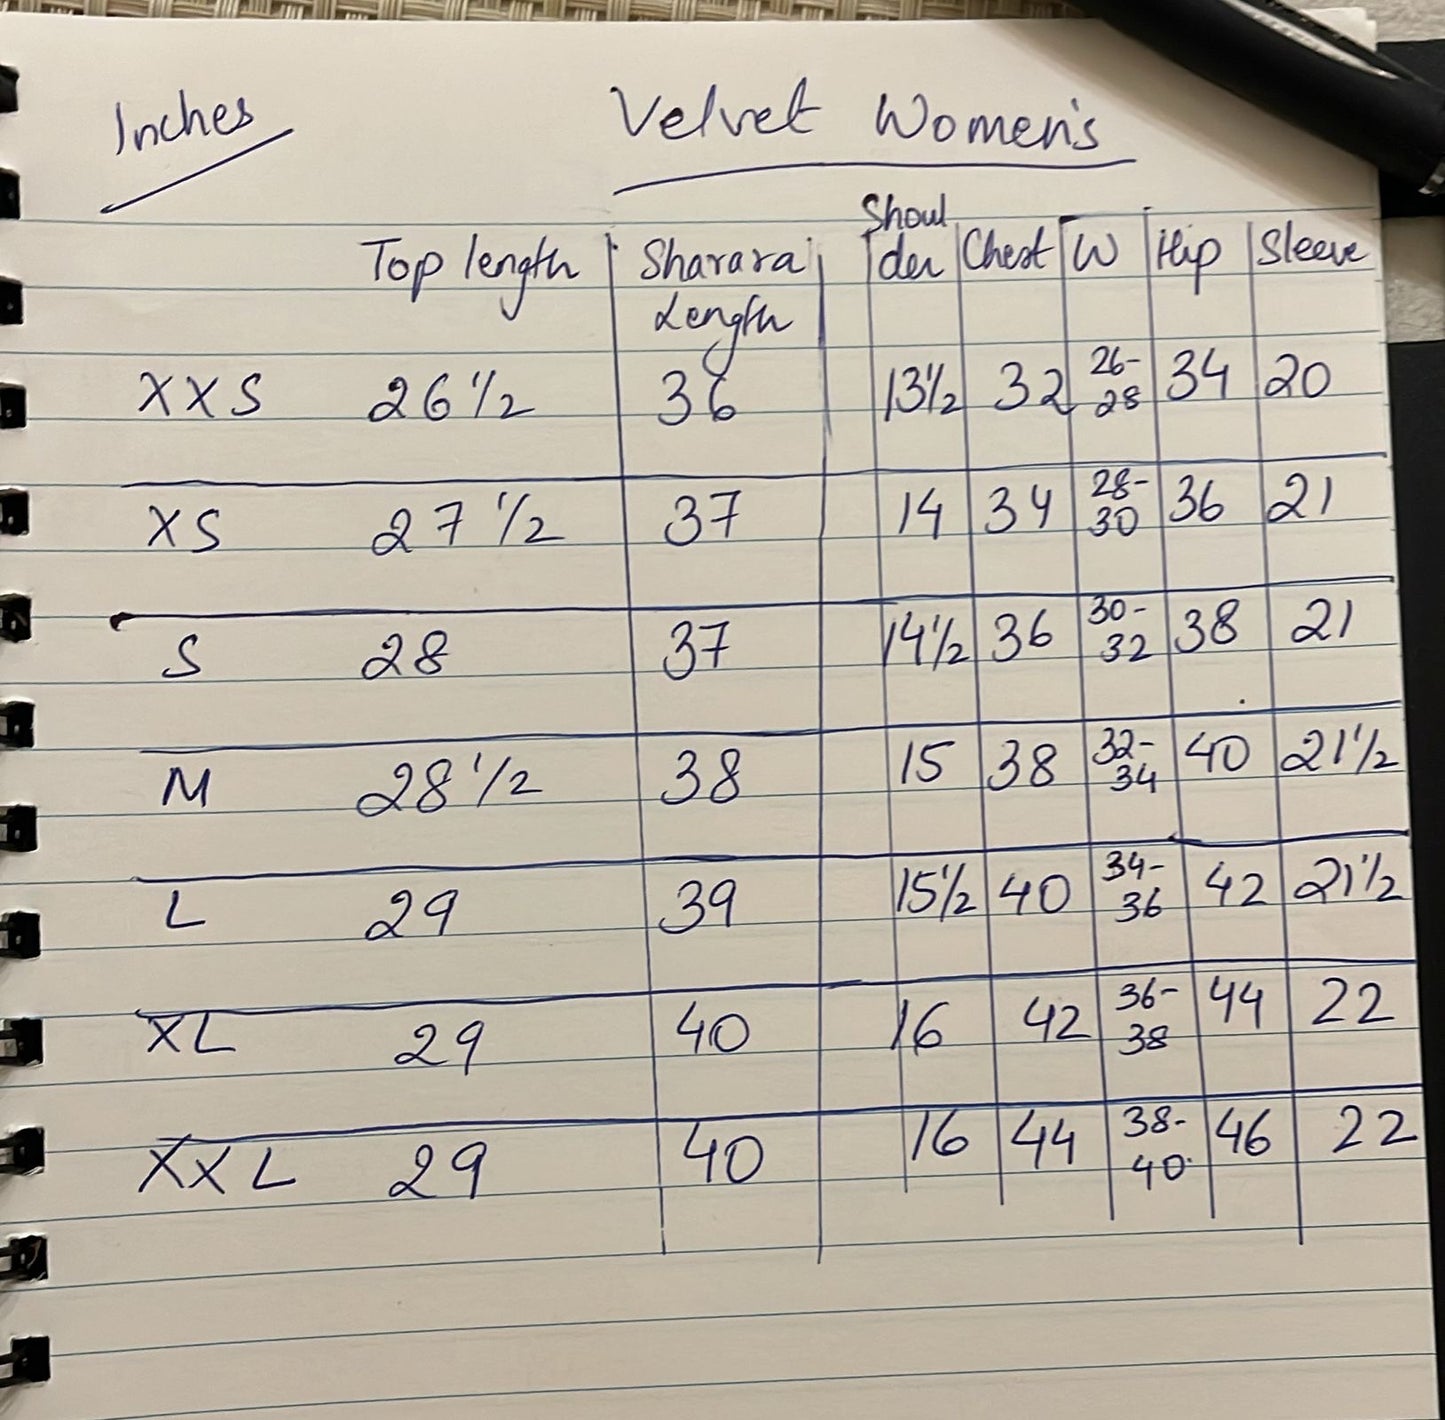 Inches Velvet Women's
Top length Sharara Length Shoul der Chest W Hip Sleeve
XXS 26 1/2 36 13 1/2 32 26-28 34 20
XS 27 1/2 37 14 34 28-30 36 21
S 28 37 14 1/2 36 30-32 38 21
M 28 1/2 38 15 38 32-34 40 21 1/2
L 29 39 15 1/2 40 34-36 42 21 1/2
XL 29 40 16 42 36-38 44 22
XXL 29 40 16 44 38-40 46 22